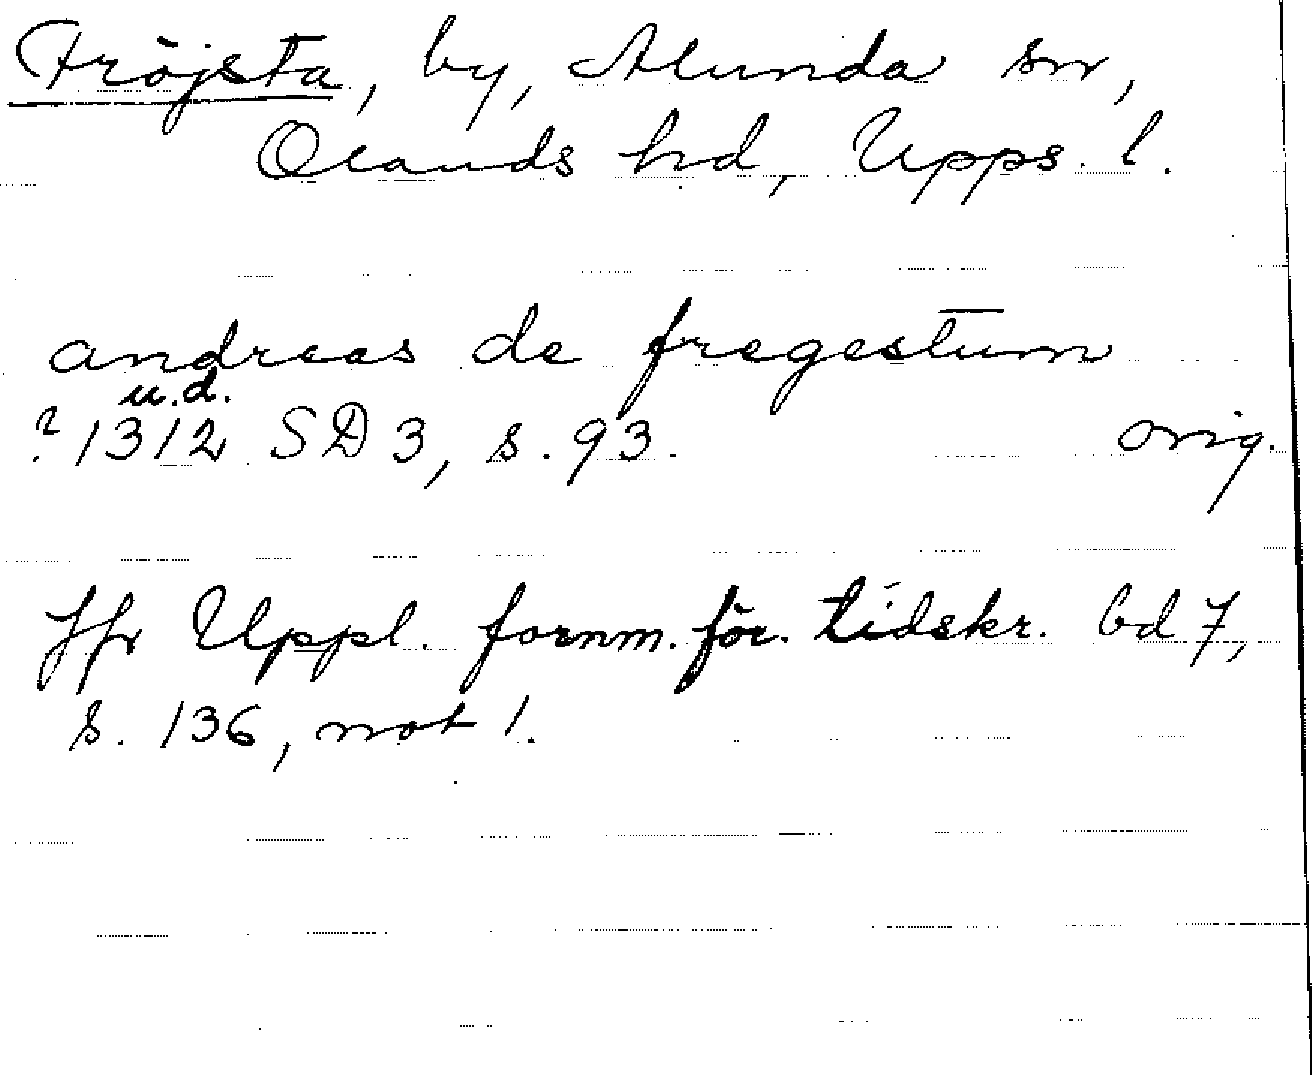 Fröjsta, by, Alunda sn,
Olands hd, Upps. l.
andreas de fregestum
u.d.
? 1312 SD 3, s. 93. orig.
Jfr Uppl. fornm. för. tidskr. bd 7,
s. 136, not 1.